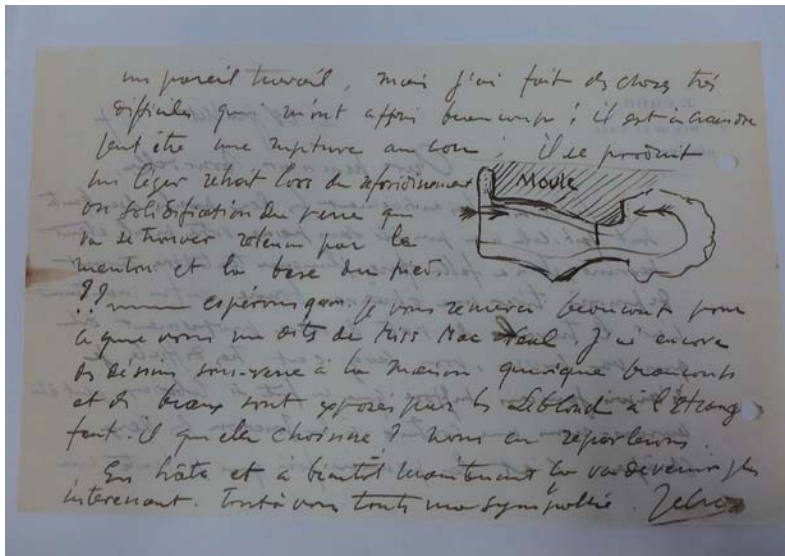 un pareil travail, mais j'ai fait des choses très
difficiles qui m'ont appris beaucoup ; il est à craindre
peut être une rupture au cou ; il se produit
un léger retrait lors du refroidissement
ou solidification du verre qui
va se trouver retenu par le
menton et la base du pied.
?? espérons que je vous remercie beaucoup pour
ce que vous me dites de Miss Mac Neul. J'ai encore
des dessins sous-verre à la maison quoique beaucoup
et de beaux sont exposés par les Leblond à l'étrang
faut-il qu'elle choisisse ? nous en reparlerons.
En hâte et à bientôt maintenant ça va devenir plus
intéressant. Tout à vous toute ma sympathie.
Moule